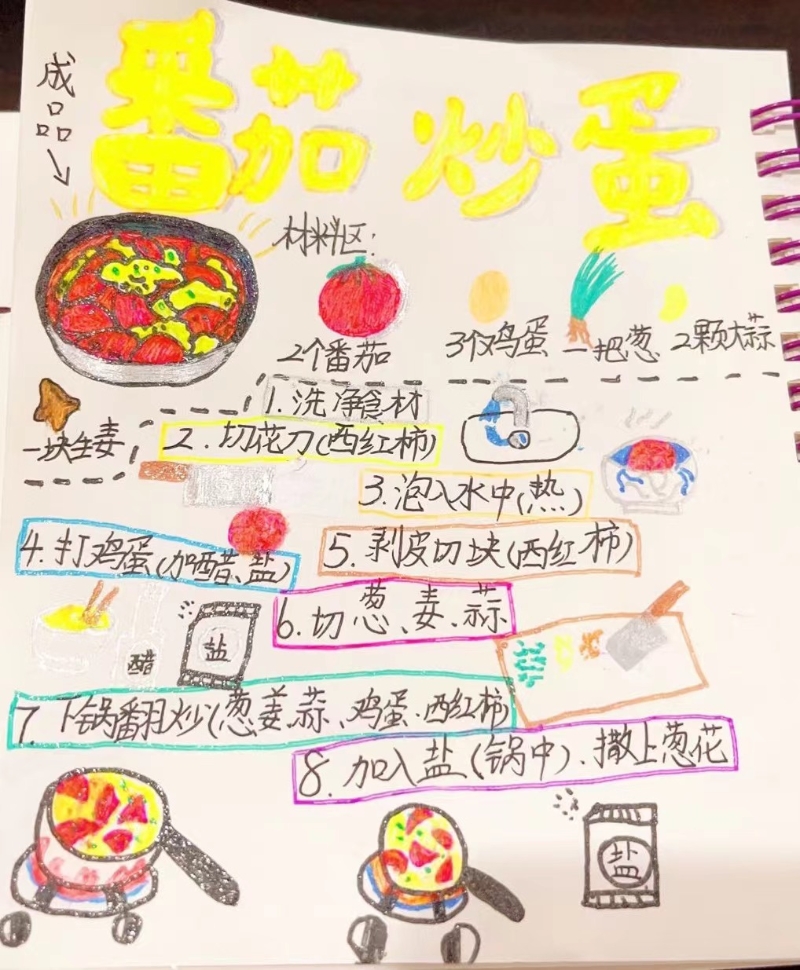 番茄炒蛋
成品
材料区:
2个番茄
3个鸡蛋
一把葱
2颗大蒜
一块生姜
1.洗净食材
2.切花刀(西红柿)
3.泡入水中(热)
4.打鸡蛋(加醋、盐)
5.剥皮切块(西红柿)
6.切葱、姜、蒜
醋
盐
7.下锅翻炒(葱姜蒜、鸡蛋、西红柿)
8.加入盐(锅中)、撒上葱花
盐